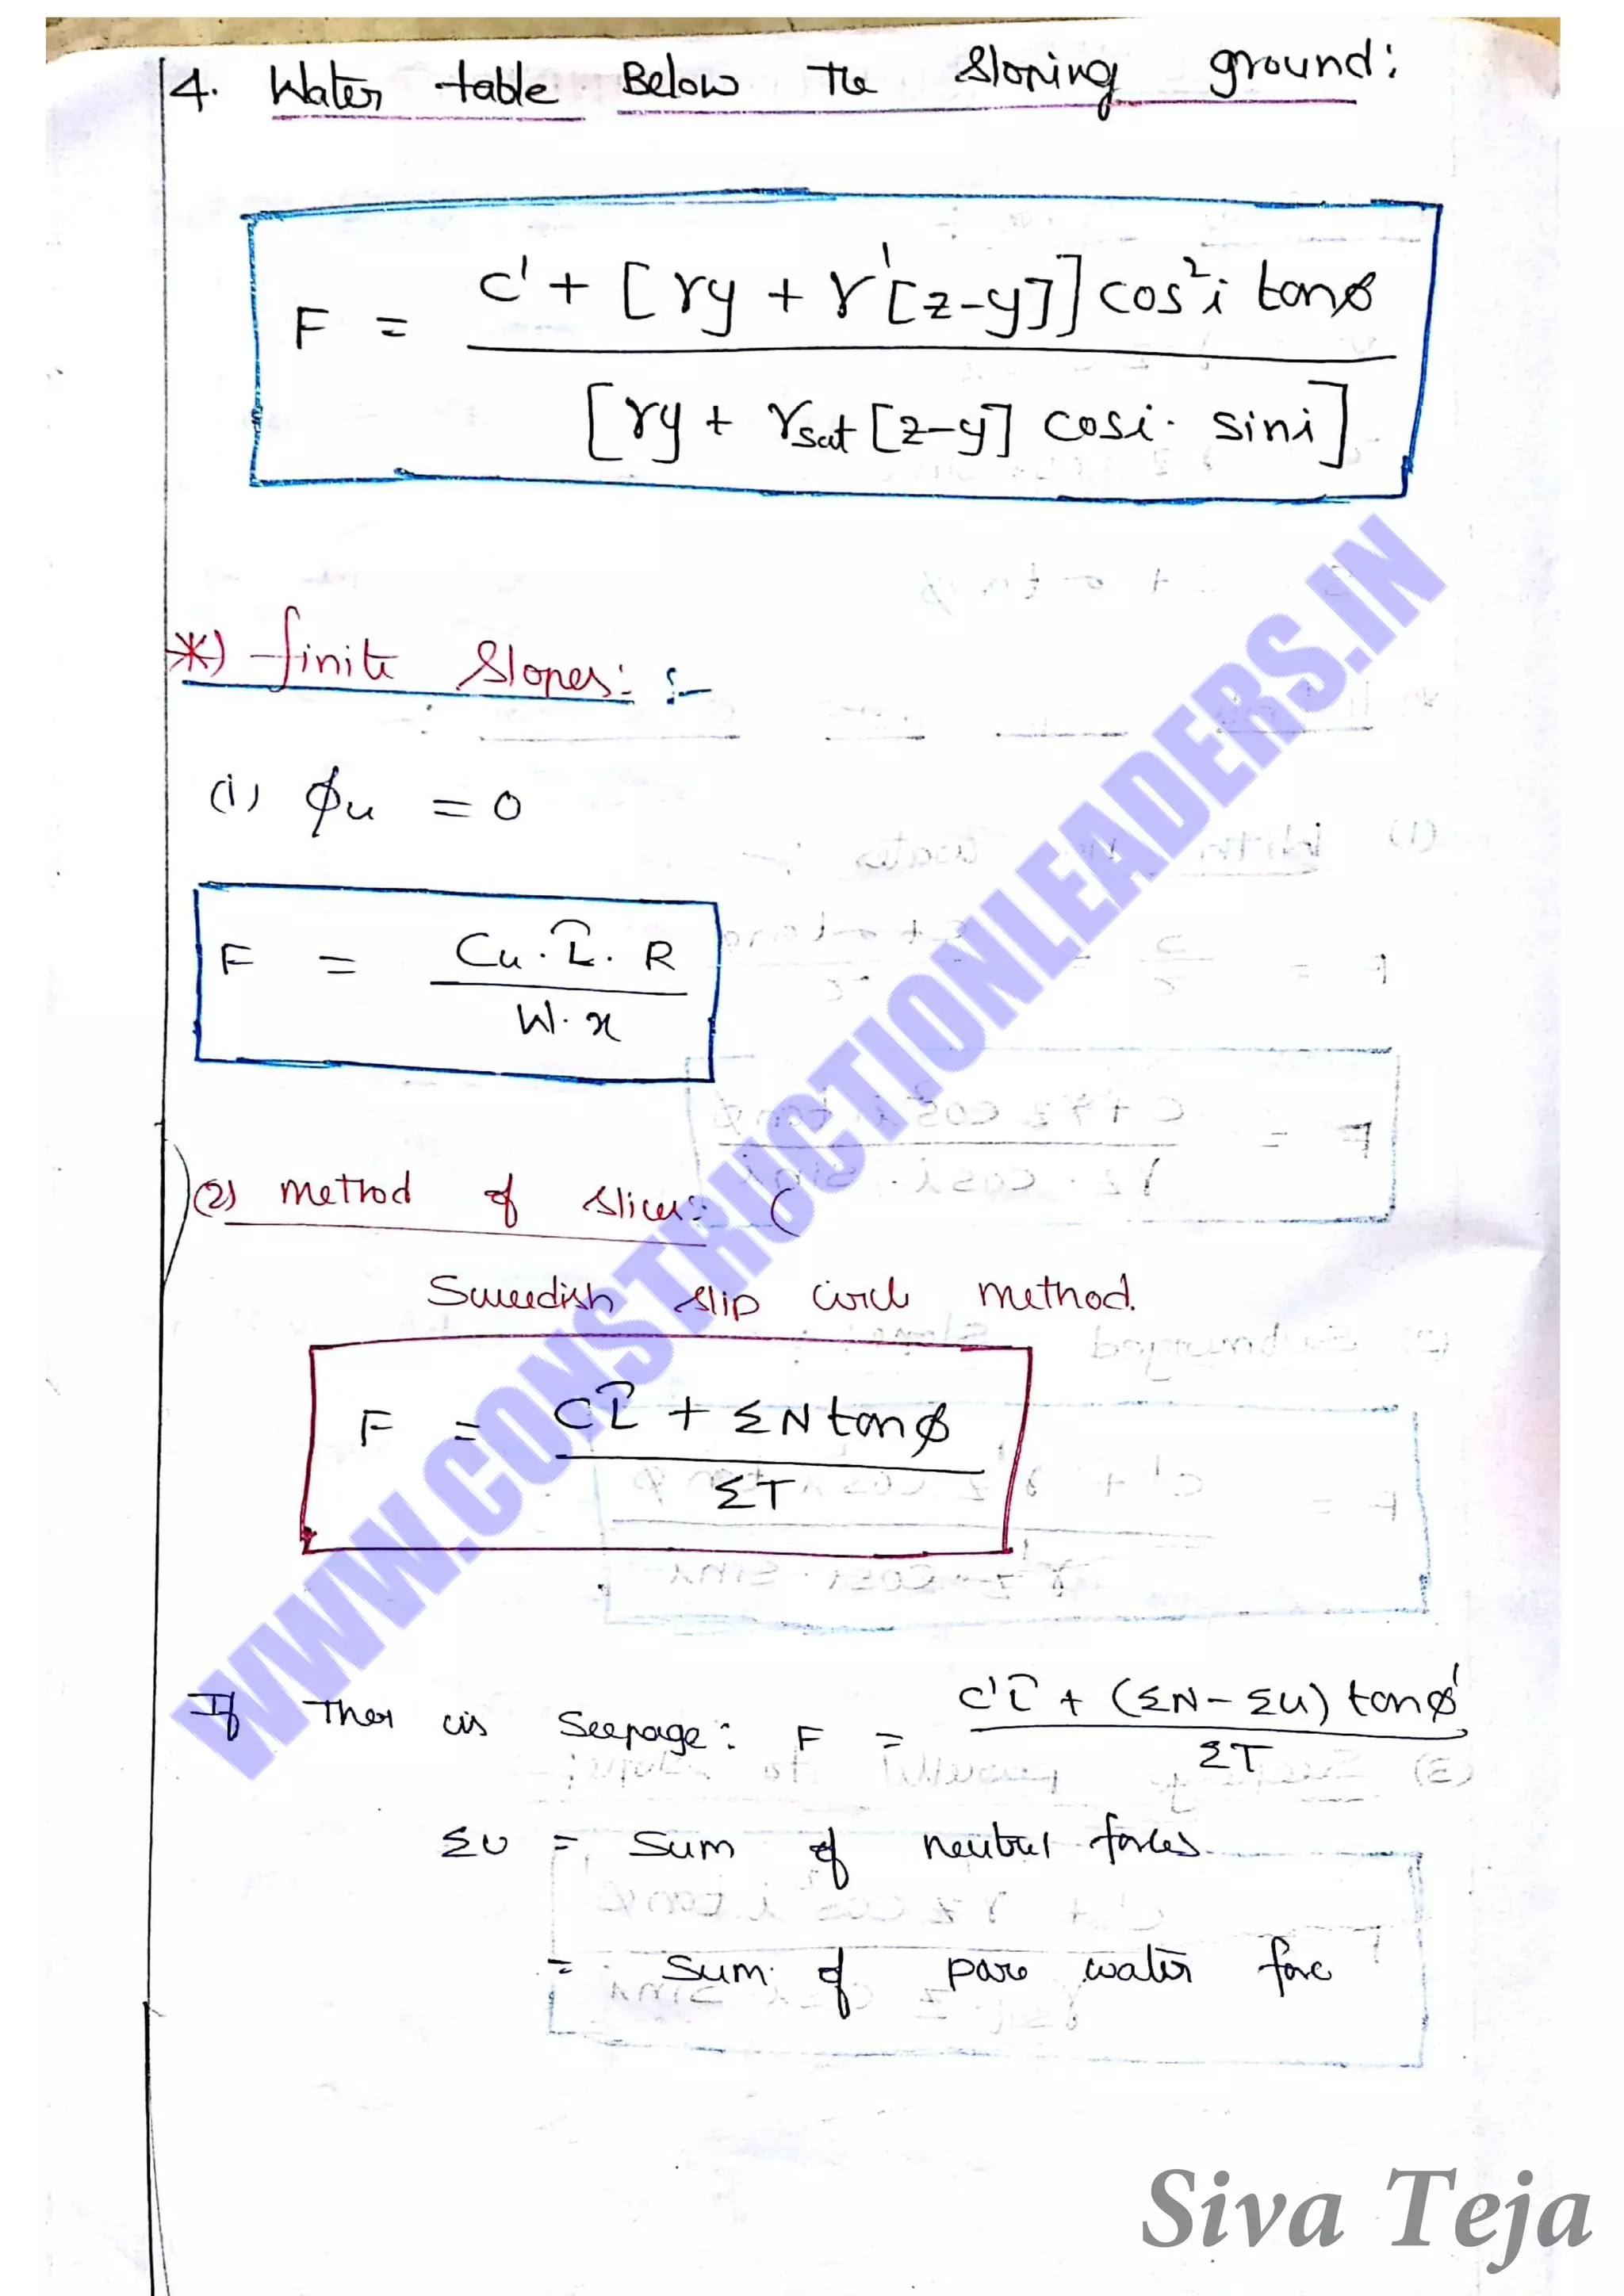 4. Water table Below The Sloping ground:
F = c' + [γy + γ'[z-y]] cos²i tanø / [γy + γsat [z-y] cosi. sini]
*) finite Slopes: :-
(i) ϕu = 0
F = Cu . L̂ . R / W. x
(2) method of slices: (
Sweedish slip circle method.
F = CL̂ + ΣN tanø / ΣT
If Ther is Seepage: F = c'L̂ + (ΣN - ΣU) tanø' / ΣT
ΣU = Sum of neutral forces.
= Sum of pore water force
WWW.CONSTRUCTIONLEADERS.IN
Siva Teja